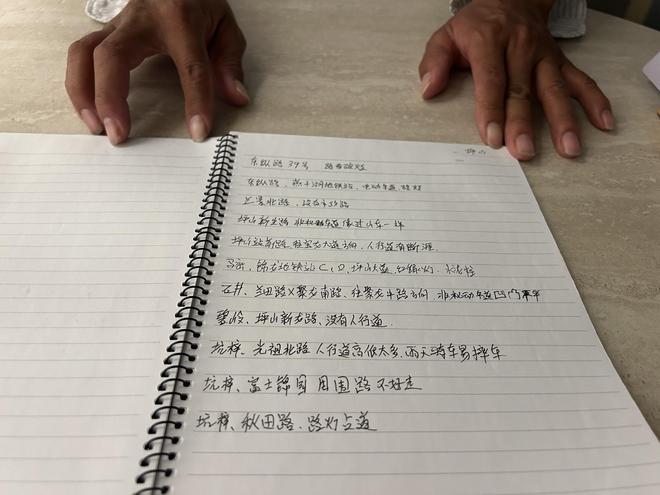 坪山
东纵路39号 路有破烂
东纵路，燕子湖地铁站，电动车道破烂
路，没有
坪山新生路 非机动车道 一样
坪山站前路，往 大道方向，人行道有断崖
马峦，锦龙地铁站C、D，坪山大道，红绿灯，
石井、兰田路X聚龙南路、往聚龙牛路方向，非机动车道凹凸
碧岭、坪山新龙路、没有人行道
坑梓、光祖北路 人行道高低太多、雨天骑车易摔车
坑梓、富士锦园周围路不好走
坑梓、秋田路、路灯占道